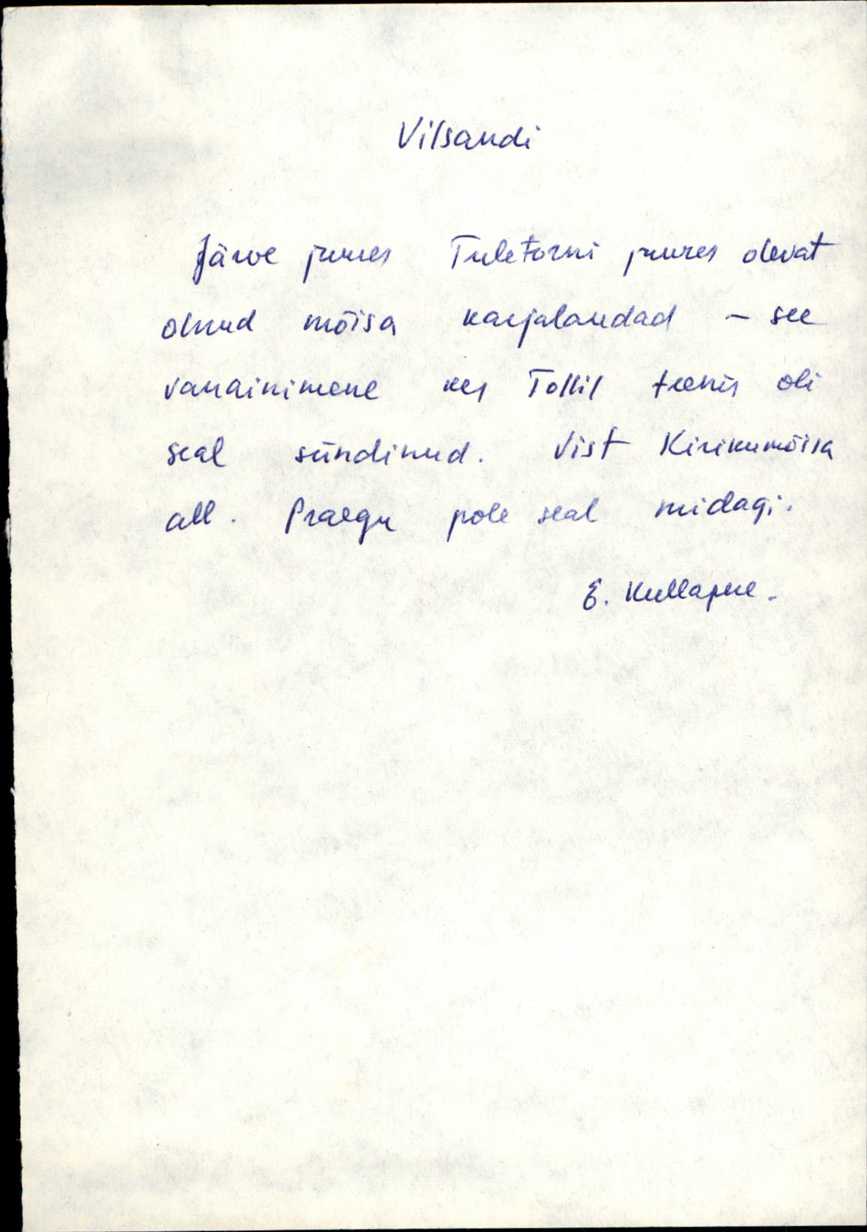 Vilsandi
Järve juures Tuletorni juures olevat
olnud mõisa karjalaudad – see
vanainimene kes Tollil teenis oli
seal sündinud. Vist Kirikumõisa
all. Praegu pole seal midagi.
E. Kullapere.